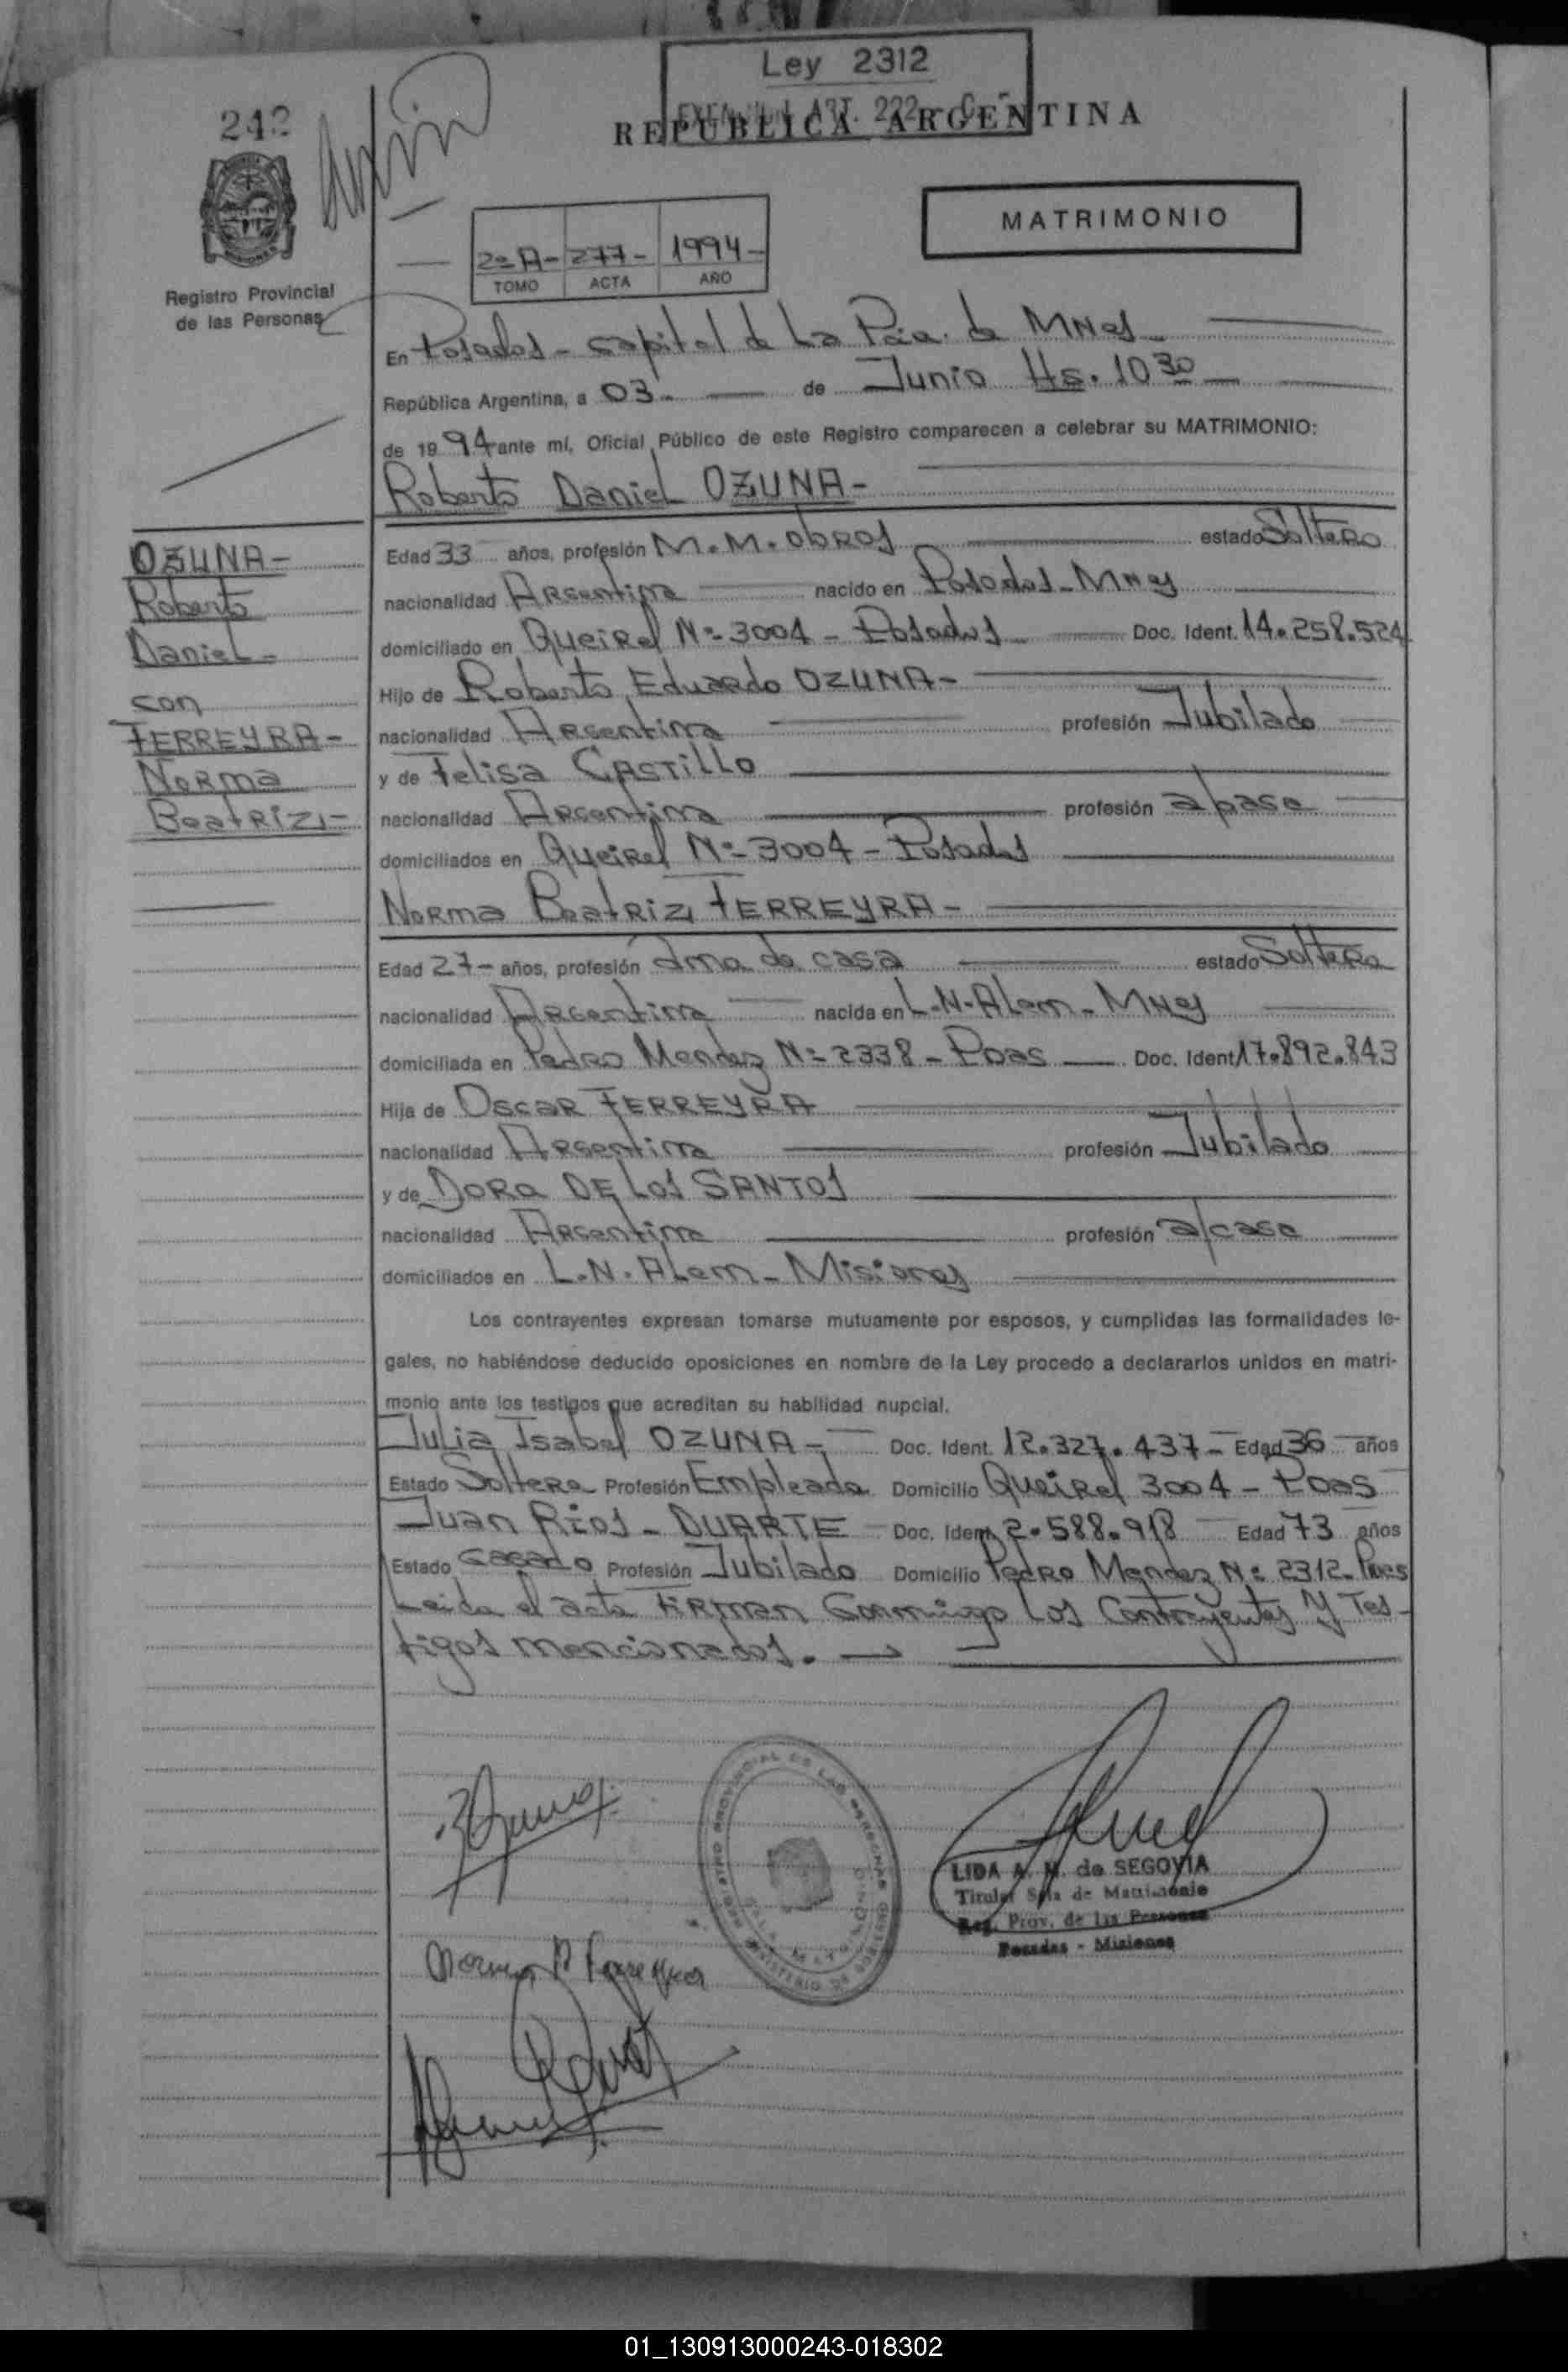 Ley 2312
ART. 222
REPUBLICA ARGENTINA
242
MATRIMONIO
2º A- 277- 1994-
TOMO ACTA AÑO
Registro Provincial
de las Personas
En Posadas - Capital de La Pcia. de MNes
República Argentina, a 03. de Junio Hs. 10 30
de 19 94 ante mí, Oficial Público de este Registro comparecen a celebrar su MATRIMONIO:
Roberto Daniel OZUNA-
OZUNA-
Roberto
Daniel-
con
FERREYRA-
Norma
Beatriz-
Edad 33 años, profesión M.M. obras estado Soltero
nacionalidad Argentina nacido en Posadas - MNes
domiciliado en Queirel Nº 3004 - Posadas Doc. Ident. 14.258.524
Hijo de Roberto Eduardo OZUNA-
nacionalidad Argentina profesión Jubilado
y de Felisa CASTILLO
nacionalidad Argentina profesión a/casa
domiciliados en Queirel Nº 3004 - Posadas
Norma Beatriz FERREYRA-
Edad 27- años, profesión Ama de casa estado Soltera
nacionalidad Argentina nacida en L.N. Alem - MNes
domiciliada en Pedro Mendez Nº 2338 - Pdas Doc. Ident. 17.892.843
Hija de Oscar FERREYRA
nacionalidad Argentina profesión Jubilado
y de Dora DE LOS SANTOS
nacionalidad Argentina profesión a/casa
domiciliados en L.N. Alem - Misiones
Los contrayentes expresan tomarse mutuamente por esposos, y cumplidas las formalidades le-
gales, no habiéndose deducido oposiciones en nombre de la Ley procedo a declararlos unidos en matri-
monio ante los testigos que acreditan su habilidad nupcial.
Julia Isabel OZUNA- Doc. Ident. 12.327.437- Edad 36 años
Estado Soltera Profesión Empleada Domicilio Queirel 3004 - Pdas
Juan Rios - DUARTE Doc. Ident. 2.588.918 Edad 73 años
Estado Casado Profesión Jubilado Domicilio Pedro Mendez Nº 2312- Pdas
Leida el acta Firman Conmigo Los Contrayentes Y Tes-
tigos mencionados.
REGISTRO PROVINCIAL DE LAS PERSONAS
MINISTERIO DE GOBIERNO
LIDA A. de SEGOVIA
Titular Sala de Matrimonio
Reg. Prov. de las Personas
Posadas - Misiones
Norma B Ferreyra
01_130913000243-018302